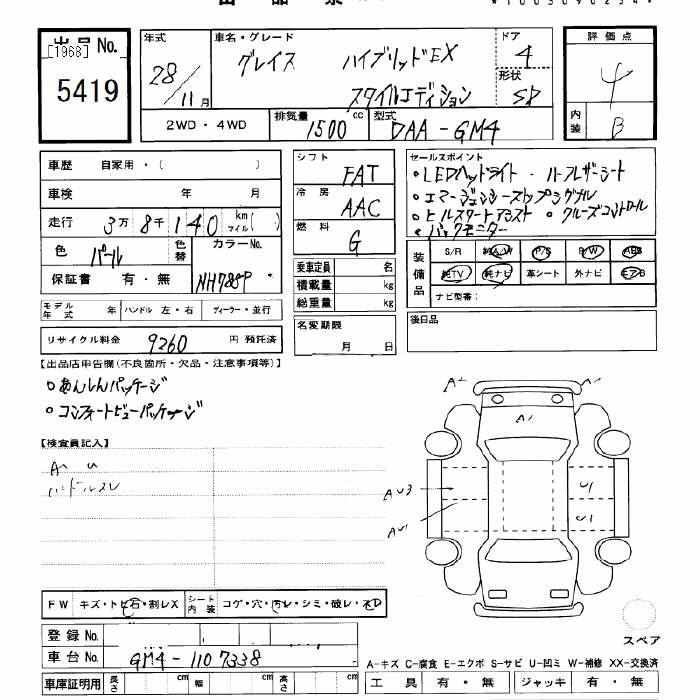 出品No. [1968] 5419
年式 28/11月
車名・グレード グレイス ハイブリッドEX スタイルエディション
ドア 4
形状 SD
評価点 4
内装 B
2WD・4WD
排気量 1500 cc
型式 DAA-GM4
車歴 自家用・( )
車検 年 月
走行 3万8千140 km マイル( )
色 パール 色替 カラーNo. NH788P
保証書 有・無
シフト FAT
冷房 AAC
燃料 G
乗車定員 名
積載量 kg
総重量 kg
セールスポイント
・LEDヘッドライト ・ハーフレザーシート
・エマージェンシーストップシグナル
・ヒルスタートアシスト ・クルーズコントロール
・バックモニター
装備品 S/R 純A/W P/S P/W ABS
純TV 純ナビ 革シート 外ナビ エアB
ナビ型番:
モデル年式 年 ハンドル 左・右 ディーラー・並行
リサイクル料金 9260 円 預託済
名変期限 月 日
後日品
【出品店申告欄(不良箇所・欠品・注意事項等)】
○あんしんパッケージ
○コンフォートビューパッケージ
【検査員記入】
A U
ハンドルスレ
A2 A1
A1
AU3 U1
AU1 U1
FW キズ・トビ石・割レX シート内装 コゲ・穴・汚レ・シミ・破レ・スレ
登録No.
車台No. GM4-1107338
スペア
A-キズ C-腐食 E-エクボ S-サビ U-凹ミ W-補修 XX-交換済
車庫証明用 長さ cm 幅 cm 高さ cm
工具 有・無 ジャッキ 有・無